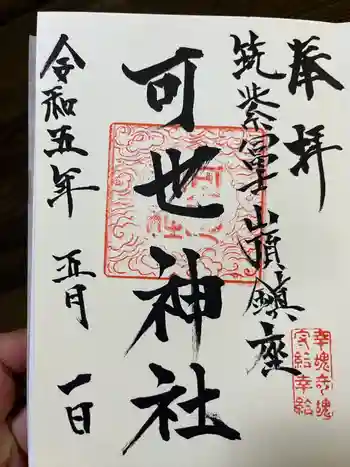 奉拝
筑紫富士山頂鎮座
可也神社
令和五年 五月 一日
幸魂奇魂
守給幸給